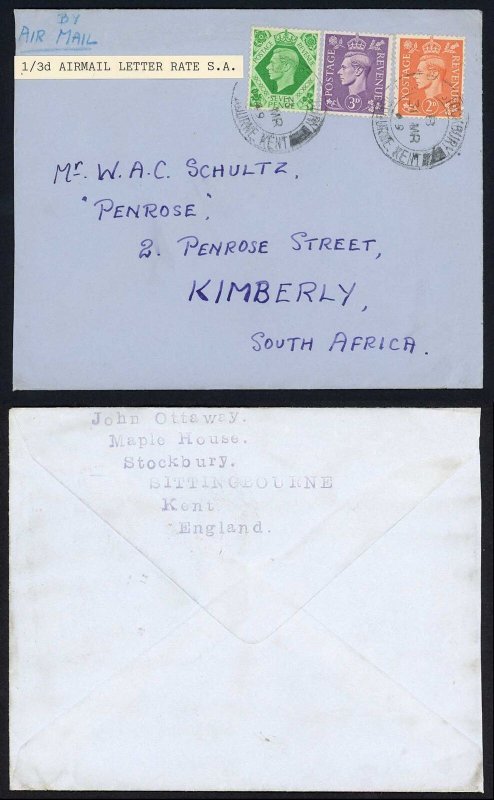 BY
AIR MAIL
1/3d AIRMAIL LETTER RATE S.A.
POSTAGE REVENUE
SEVEN PENCE
POSTAGE REVENUE
3D
POSTAGE REVENUE
2D
KENT
KENT
Mr. W.A.C. SCHULTZ,
"PENROSE",
2. PENROSE STREET,
KIMBERLY,
SOUTH AFRICA.
John Ottaway.
Maple House.
Stockbury.
SITTINGBOURNE
Kent
England.